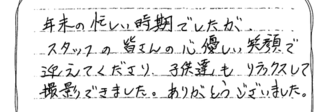 年末の忙しい時期でしたが、
スタッフの皆さんの心優しい笑顔で
迎えてくださり、子供達も リラックスして
撮影できました。ありがとうございました。